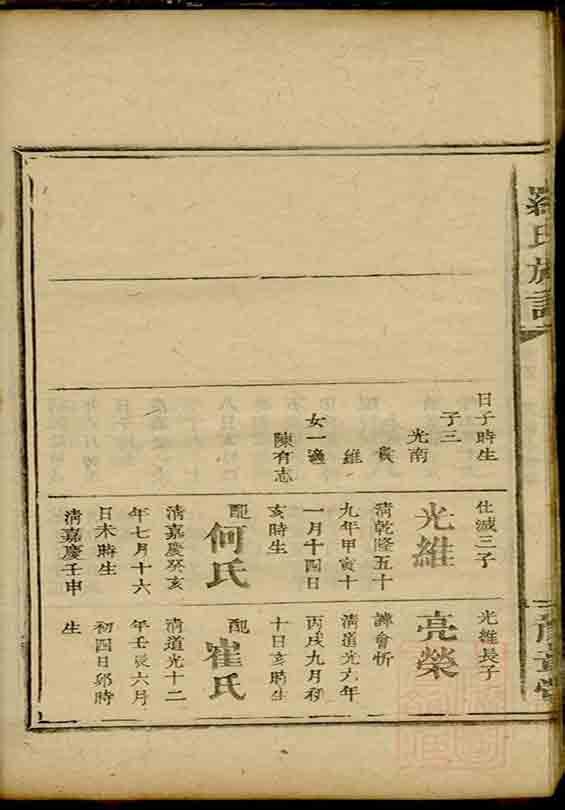 羅氏族譜
日子時生
子三
光南
寅
維
女一適
陳有志
仕滅三子
光維
清乾隆五十
九年甲寅十
一月十四日
亥時生
配
何氏
清嘉慶癸亥
年七月十六
日未時生
清嘉慶壬申
光維長子
亮榮
諱會忻
清道光六年
丙戌九月初
十日亥時生
配
崔氏
清道光十二
年壬辰六月
初四日卯時
生